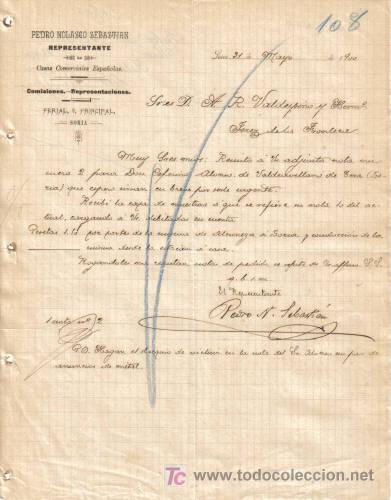 108
PEDRO NOLASCO SEBASTIAN
REPRESENTANTE
DE
Casas Comerciales Españolas.
Comisiones.-Representaciones.
FERIAL, 2, PRINCIPAL,
SORIA
Soria 21 de Mayo de 1900
Sres D. A. R. Valdespino y Herm.
Jerez de la Frontera
Muy Sres mios: Remito a V. adjunta nota nu-
mero 2 para Don Ceferino Alonso de Valdeavellano de Tera (So-
ria) que espero sirvan en breve por serle urgente.
Recibí la caja de muestras a que se refiere su nota 10 del ac-
tual, cargando a V. debitadas en cuenta
Pesetas 1.15 por portes de la misma de a Soria y conducción de la
misma desde la estacion a casa.
Rogandoles me nota de pedido se ofrece de V. affmo. S. S.
q. b. s. m.
El Representante
Pedro N. Sebastián
1 nota nº 2
P.D. Hagan el de en la nota del Sr. Alonso un par de
anuncios de metal.
TC www.todocoleccion.net